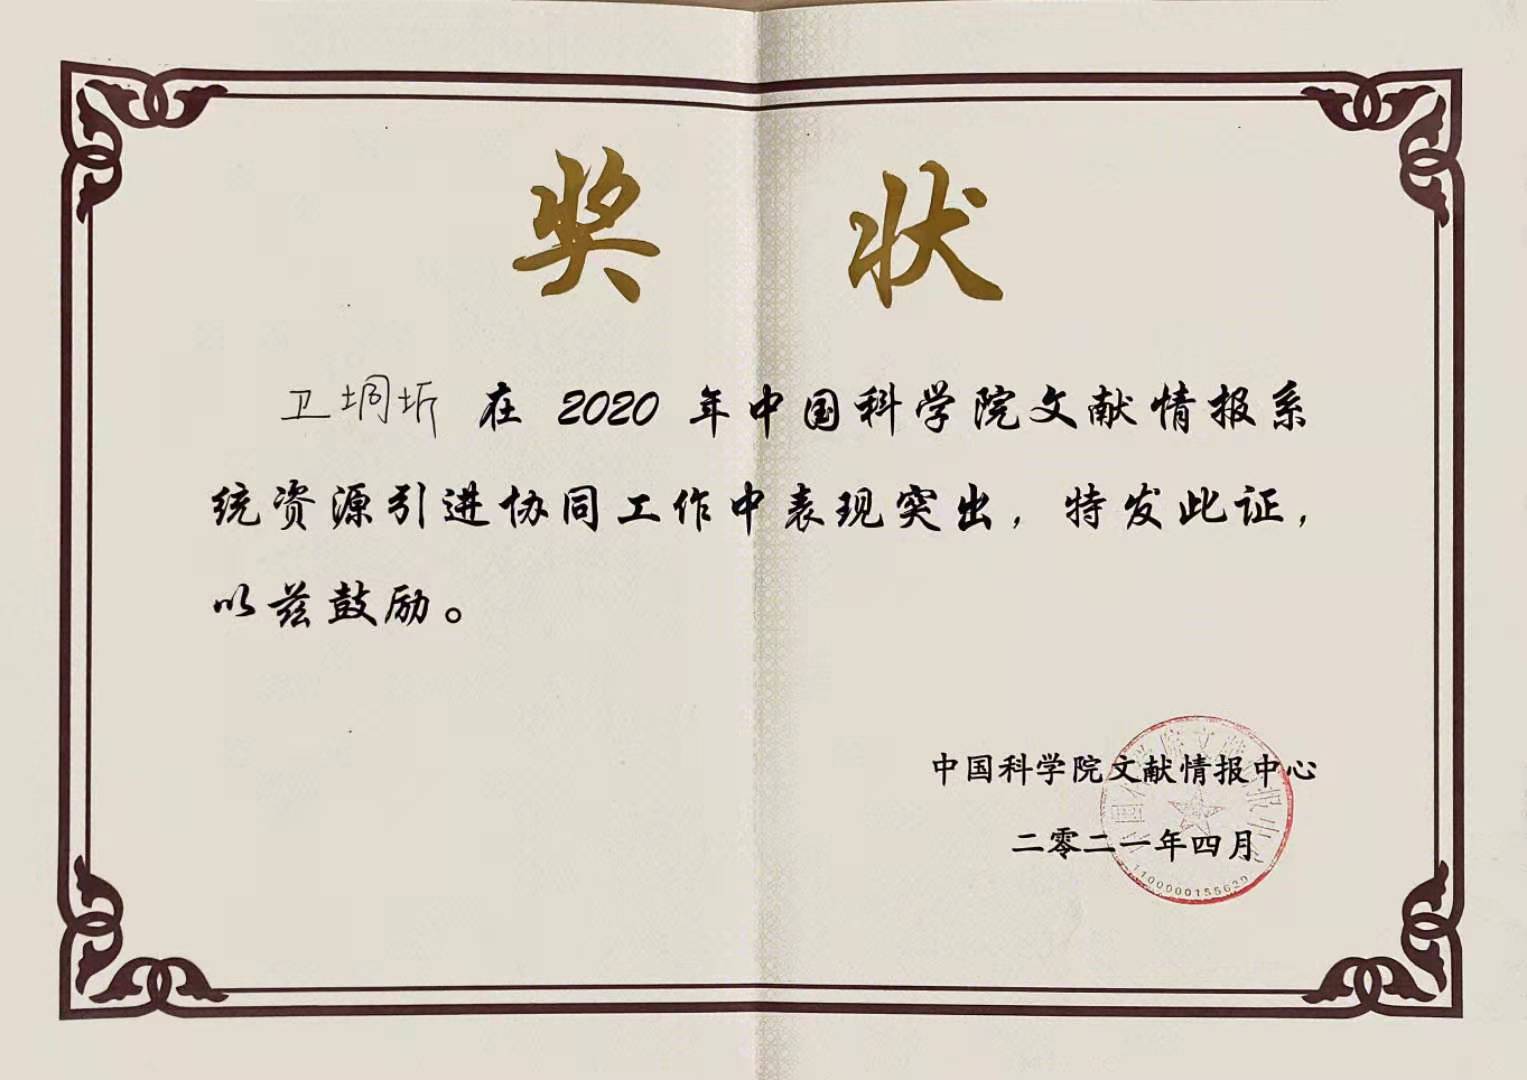 奖状
卫垌圻 在 2020 年中国科学院文献情报系
统资源引进协同工作中表现突出，特发此证，
以兹鼓励。
中国科学院文献情报中心
二零二一年四月
1100000155629